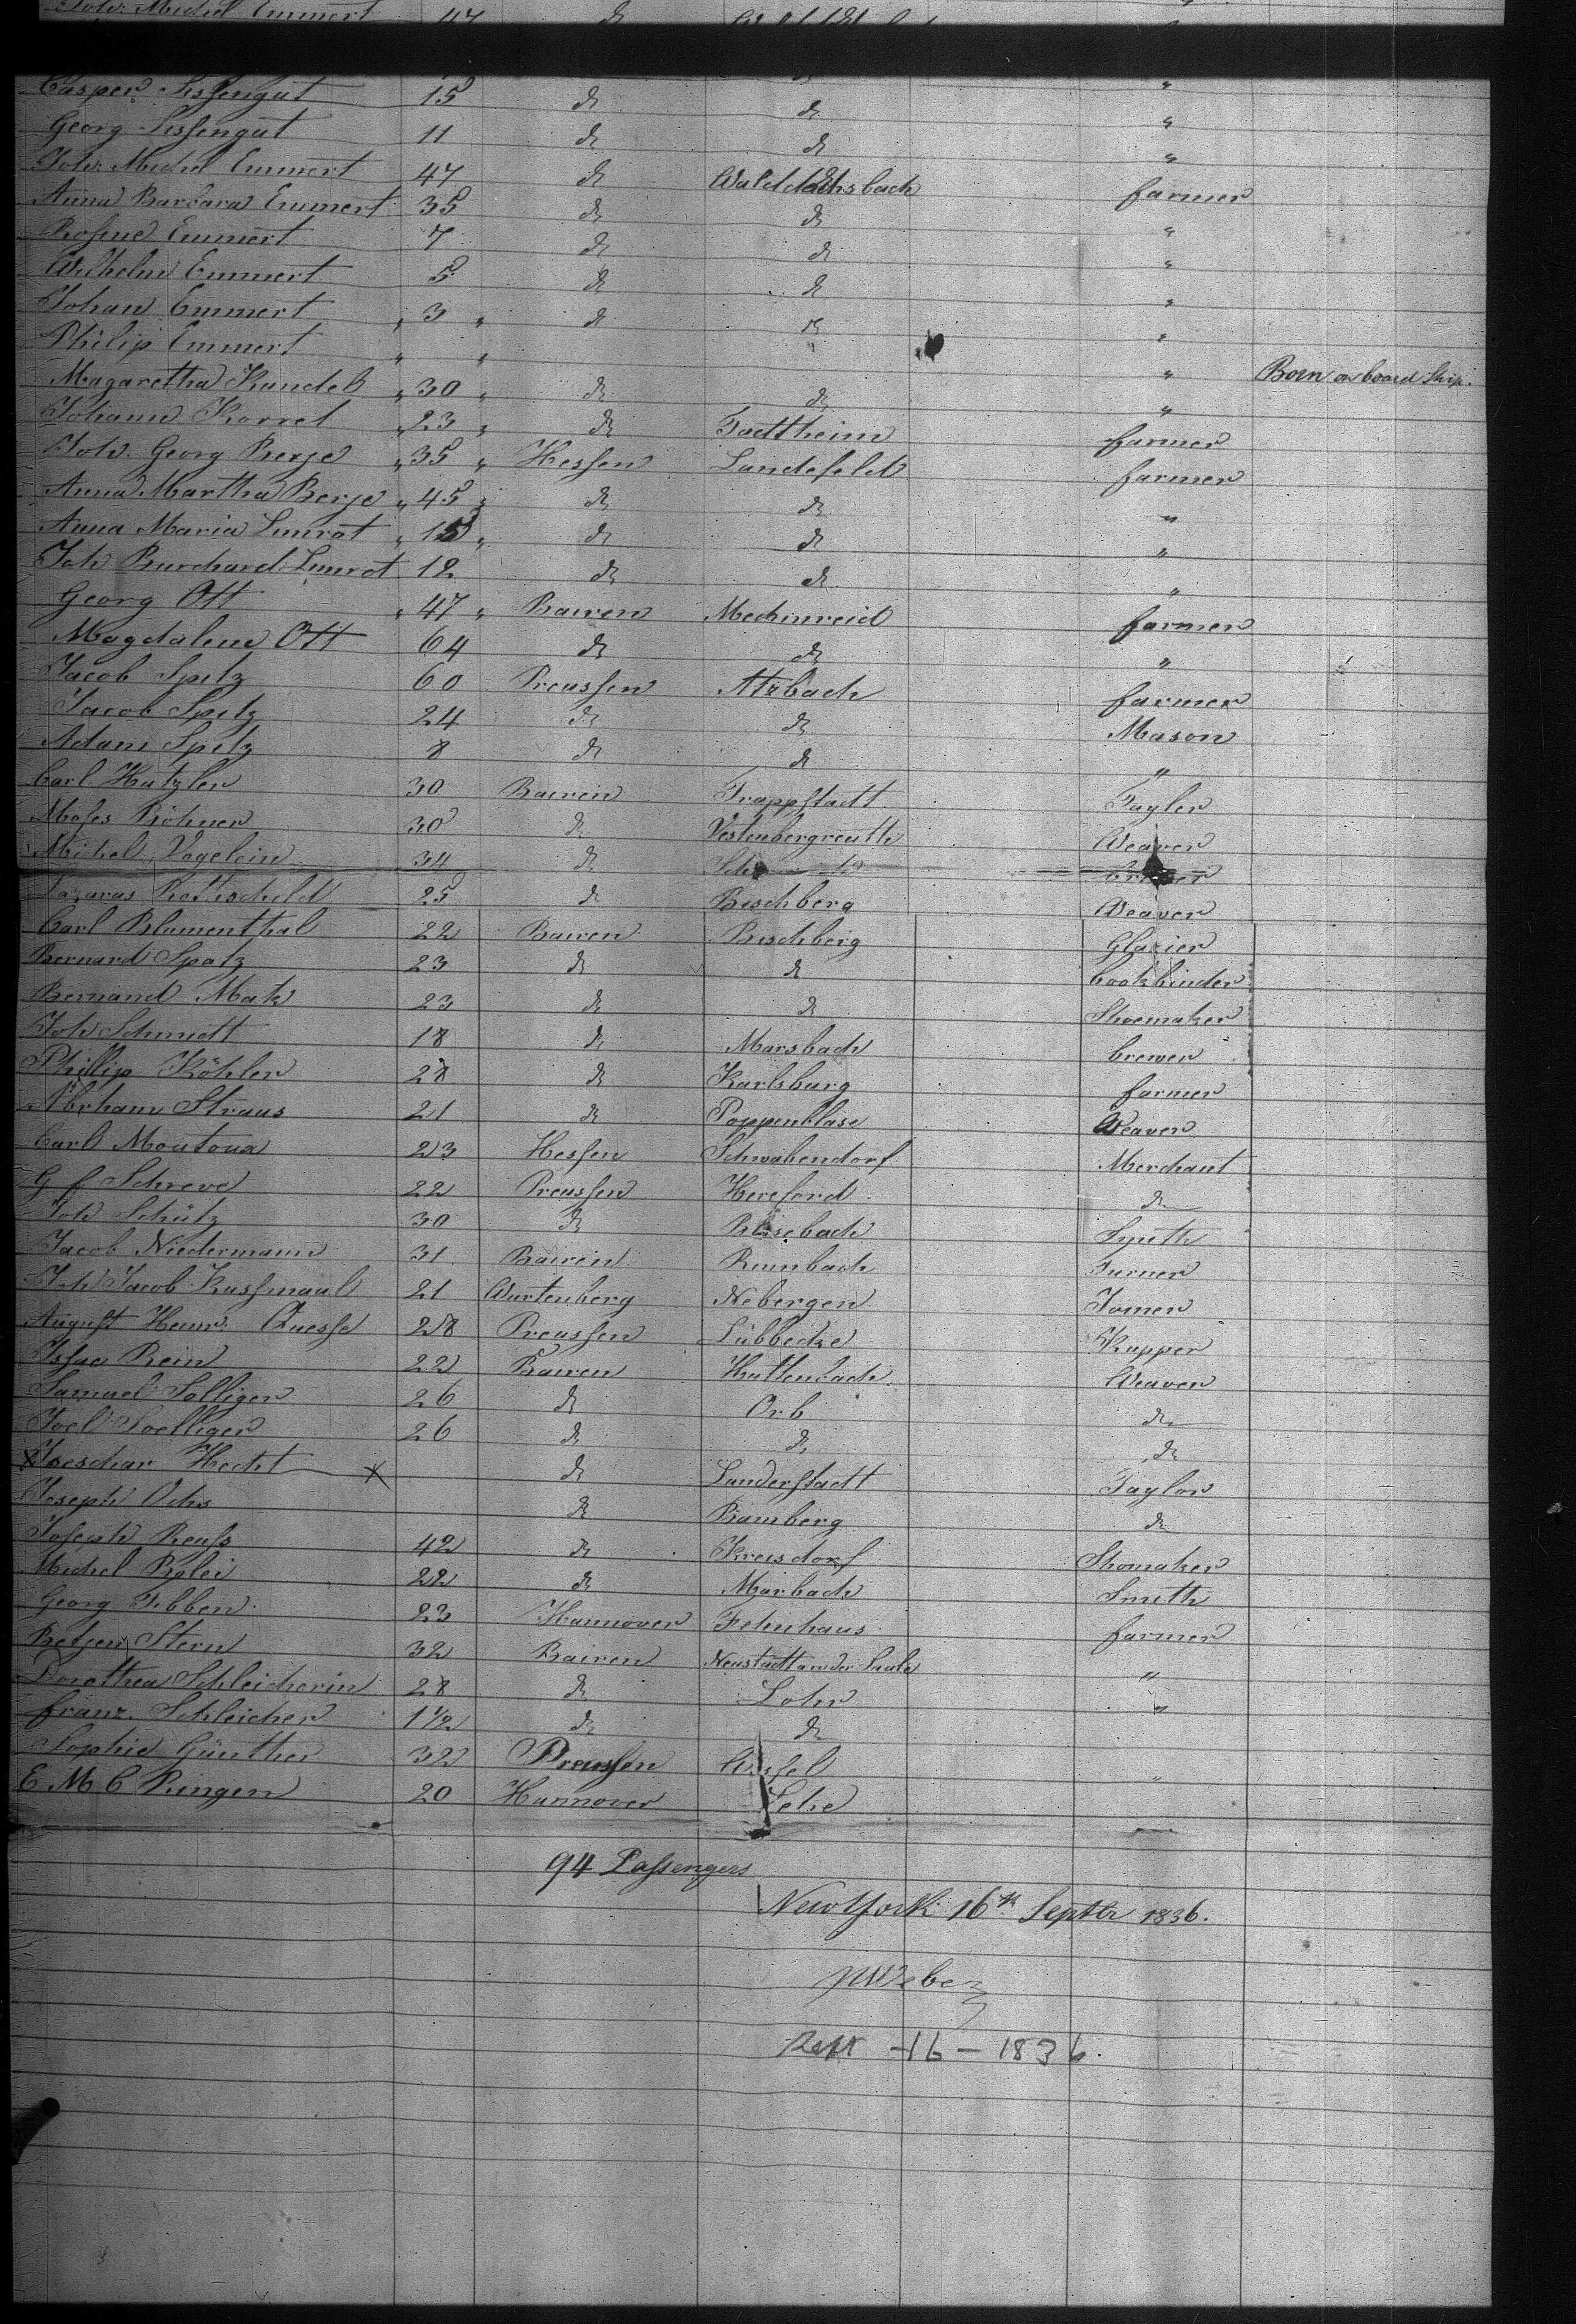 Joh. Michel Emmert 47 do
Casper Sissengut 15 do do "
Georg Sissengut 11 do do "
Joh. Michel Emmert 47 do Walddachsbach farmer
Anna Barbara Emmert 35 do do "
Rosine Emmert 7 do do "
Wilhelm Emmert 5 do do "
Johan Emmert " 3 " do do "
Philip Emmert " " " Born on board Ship.
Magaretha Kandel " 30 " do do "
Johann Korrel " 23 " do farmer
Joh. Georg Berje " 35 " Hessen Landefeld farmer
Anna Martha Berje " 45 " do do "
Anna Maria " 15 " do do "
Joh Burchard 12 do do "
Georg Ott " 47 " Bairen Mechinreid farmer
Magdalena Ott 64 do do "
Jacob Spitz 60 Preussen Atzbach farmer
Jacob Spitz 24 do do Mason
Adam Spitz 8 do do "
Carl Hatzler 30 Bairen Trappstadt Tayler
Moses Böhner 30 do Vestenbergreuth Weaver
Michel Vogelein 34 do
Lazarus Rothscheld 25 do Bischberg Weaver
Carl Blumenthal 22 Bairen Bischberg Glazier
Bernard Spatz 23 do do bookbinder
Bernand Mack 23 do do Shoemaker
Joh Schmidt 18 do Marsbach brewer
Phillip Köhler 28 do Karlsburg farmer
Abrham Straus 21 do Poppenblase Weaver
Carl Moutoux 23 Hessen Schwabendorf Merchant
G f Schreve 22 Preussen Hereford do
Joh Schütz 30 do Smith
Jacob Niedermann 31 Bairen Rumbach Turner
Joh Jacob Kussmaul 21 Wurtenberg Nebergen Joiner
August Heinr. Quesse 28 Preussen Lübbecke Kupper
Issac Rein 22 Bairen Huttenbach Weaver
Samuel Solliger 26 do Orb do
Joel Soelliger 26 do do do
x Iseschar Hecht x do Landerstadt Taylor
Joseph Ochs do Bamberg do
Joseph Reuss 42 do Kreisdorf Shomaker
Michel Rolei 22 do Marbach Smith
Georg Tebben 23 Hannover Fehnhaus farmer
Betjen Stern 32 Bairen Neustadt an der Saale "
Dorothea Schleicherin 28 do Lohr "
franz. Schleicher 1 1/2 do do
Sophie Günther 32 Preussen "
E M C Ringen 20 Hannover Lehe
94 Passengers
New York 16th Septbr 1836.
16 - 1836.